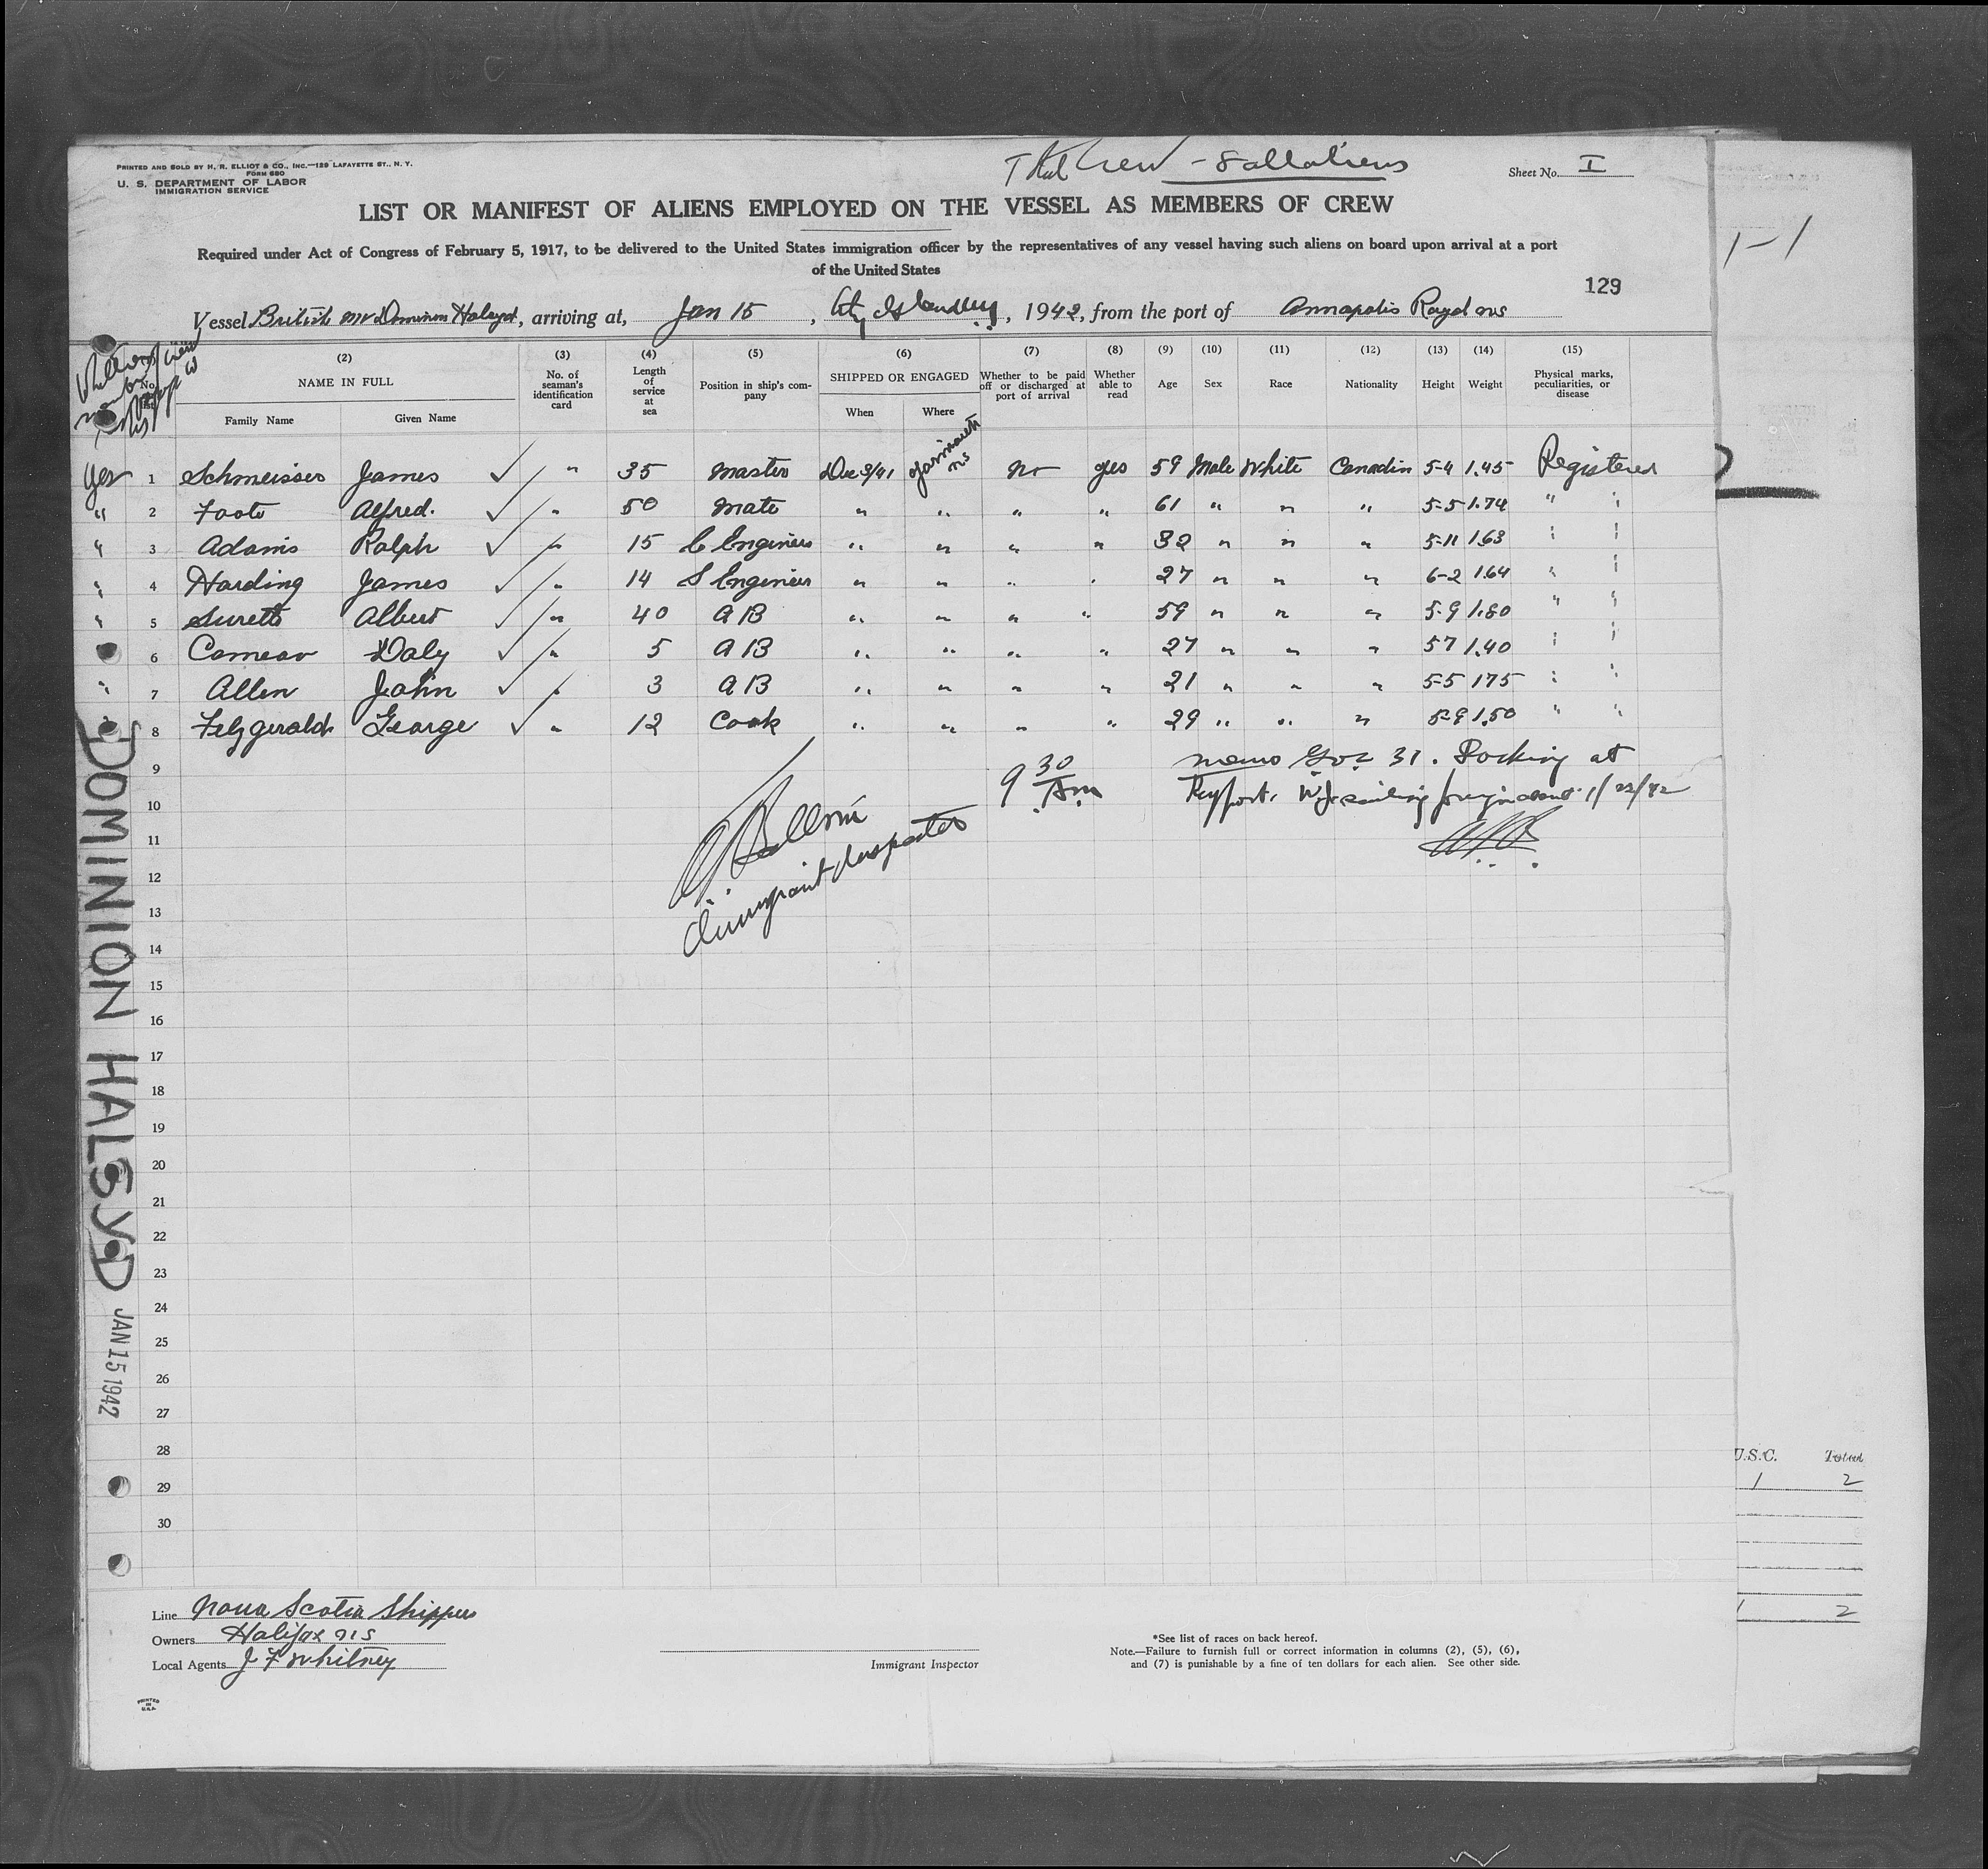 PRINTED AND SOLD BY H. R. ELLIOT & CO., INC.—129 LAFAYETTE ST., N. Y.
FORM 680
U. S. DEPARTMENT OF LABOR
IMMIGRATION SERVICE
Total Crew - 8 all aliens
Sheet No. I
LIST OR MANIFEST OF ALIENS EMPLOYED ON THE VESSEL AS MEMBERS OF CREW
Required under Act of Congress of February 5, 1917, to be delivered to the United States immigration officer by the representatives of any vessel having such aliens on board upon arrival at a port
of the United States
1-1
129
Vessel British MV Dominion Halsyd, arriving at, Jan 15, City Island NY, 1942, from the port of Annapolis Royal NS
(2) (3) (4) (5) (6) (7) (8) (9) (10) (11) (12) (13) (14) (15)
NAME IN FULL No. of seaman's identification card Length of service at sea Position in ship's company SHIPPED OR ENGAGED Whether to be paid off or discharged at port of arrival Whether able to read Age Sex Race Nationality Height Weight Physical marks, peculiarities, or disease
Family Name Given Name When Where
Yes 1 Schmeisser James ✓ " 35 Master Dec 3/41 Yarmouth NS No yes 59 Male White Canadin 5-4 1.45 Registered
" 2 Foote Alfred. ✓ " 50 Mate " " " " 61 " " " 5-5 1.74 " "
" 3 Adams Ralph ✓ " 15 C Engineer " " " " 32 " " " 5-11 163 " "
" 4 Harding James ✓ " 14 S Engineer " " " " 27 " " " 6-2 164 " "
" 5 Surette Albert ✓ " 40 AB " " " " 59 " " " 5-9 1.80 " "
6 Comeau Daly ✓ " 5 AB " " " " 27 " " " 57 1.40 " "
" 7 Allen John ✓ " 3 AB " " " " 21 " " " 5-5 175 " "
8 Fitzgerald George ✓ " 12 Cook " " " " 29 " " " 5-9 1.50 " "
9
10
11
12
13
14
15
16
17
18
19
20
21
22
23
24
25
26
27
28
29
30
9 30 Am
31. Docking at
Keyport, NJ sailing foreign about 1/22/42
Immigrant Inspector
DOMINION HALSYD
JAN 15 1942
U.S.C. Total
1 2
1 2
Line Nova Scotia Shippers
Owners Halifax NS
Local Agents J F Whitney
Immigrant Inspector
*See list of races on back hereof.
Note.—Failure to furnish full or correct information in columns (2), (5), (6),
and (7) is punishable by a fine of ten dollars for each alien. See other side.
PRINTED
IN
U.S.A.